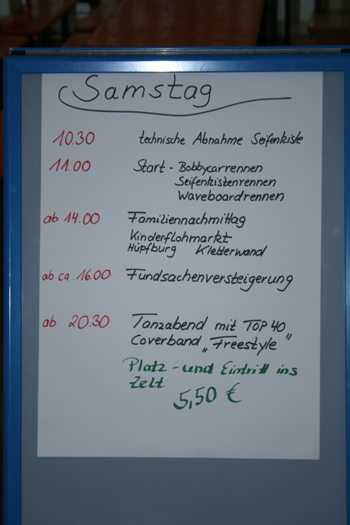 Samstag
10.30 technische Abnahme Seifenkiste
11.00 Start - Bobbycarrennen
Seifenkistenrennen
Waveboardrennen
ab 14.00 Familiennachmittag
Kinderflohmarkt
Hüpfburg Kletterwand
ab ca. 16.00 Fundsachenversteigerung
ab 20.30 Tanzabend mit TOP 40
Coverband „Freestyle"
Platz - und Eintritt ins
Zelt
5,50 €